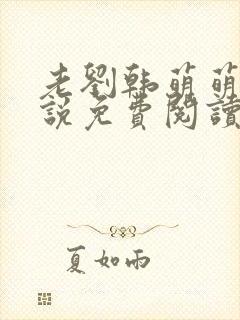 老劉韩萌萌
說免費閱讀
夏如雨